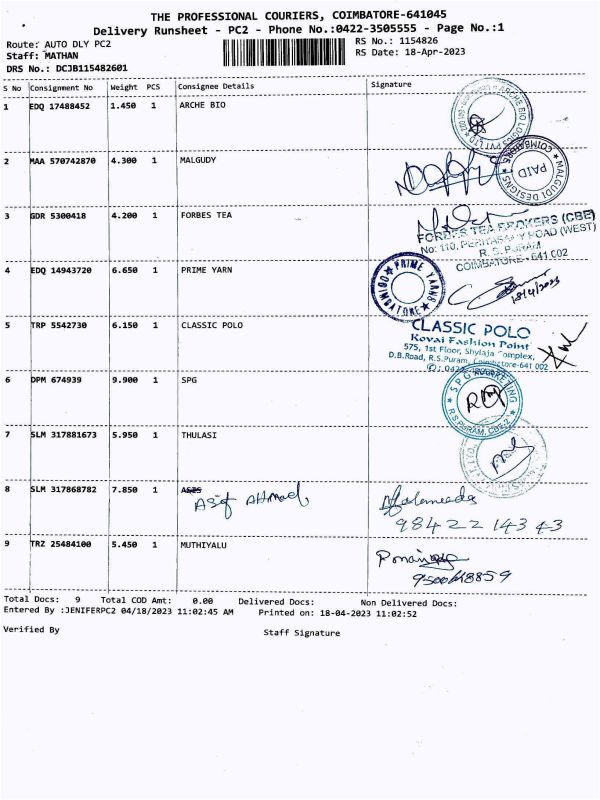 THE PROFESSIONAL COURIERS, COIMBATORE-641045
Delivery Runsheet - PC2 - Phone No.:0422-3505555 - Page No.:1
Route: AUTO DLY PC2
RS No.: 1154826
Staff: MATHAN
RS Date: 18-Apr-2023
DRS No.: DCJB115482601
S No Consignment No Weight PCS Consignee Details Signature
1 EDQ 17488452 1.450 1 ARCHE BIO
2 MAA 570742870 4.300 1 MALGUDY
MALGUDI DESIGNS COIMBATORE
PAID
3 GDR 5300418 4.200 1 FORBES TEA
FORBES TEA BROKERS (CBE)
No: 110, ROAD (WEST)
R. S. PURAM
COIMBATORE - 641 002
4 EDQ 14943720 6.650 1 PRIME YARN
PRIME YARNS COIMBATORE
18/4/2023
5 TRP 5542730 6.150 1 CLASSIC POLO
CLASSIC POLO
Kovai Fashion Point
575, 1st Floor, Shylaja Complex,
D.B.Road, R.S.Puram, Coimbatore-641 002
6 DPM 674939 9.900 1 SPG
SPG MARKETING
R.S.PURAM, CBE-2
7 SLM 317881673 5.950 1 THULASI
8 SLM 317868782 7.850 1
Asif Ahmad
98422 14343
9 TRZ 25484100 5.450 1 MUTHIYALU
Total Docs: 9 Total COD Amt: 0.00 Delivered Docs: Non Delivered Docs:
Entered By :JENIFERPC2 04/18/2023 11:02:45 AM Printed on: 18-04-2023 11:02:52
Verified By Staff Signature